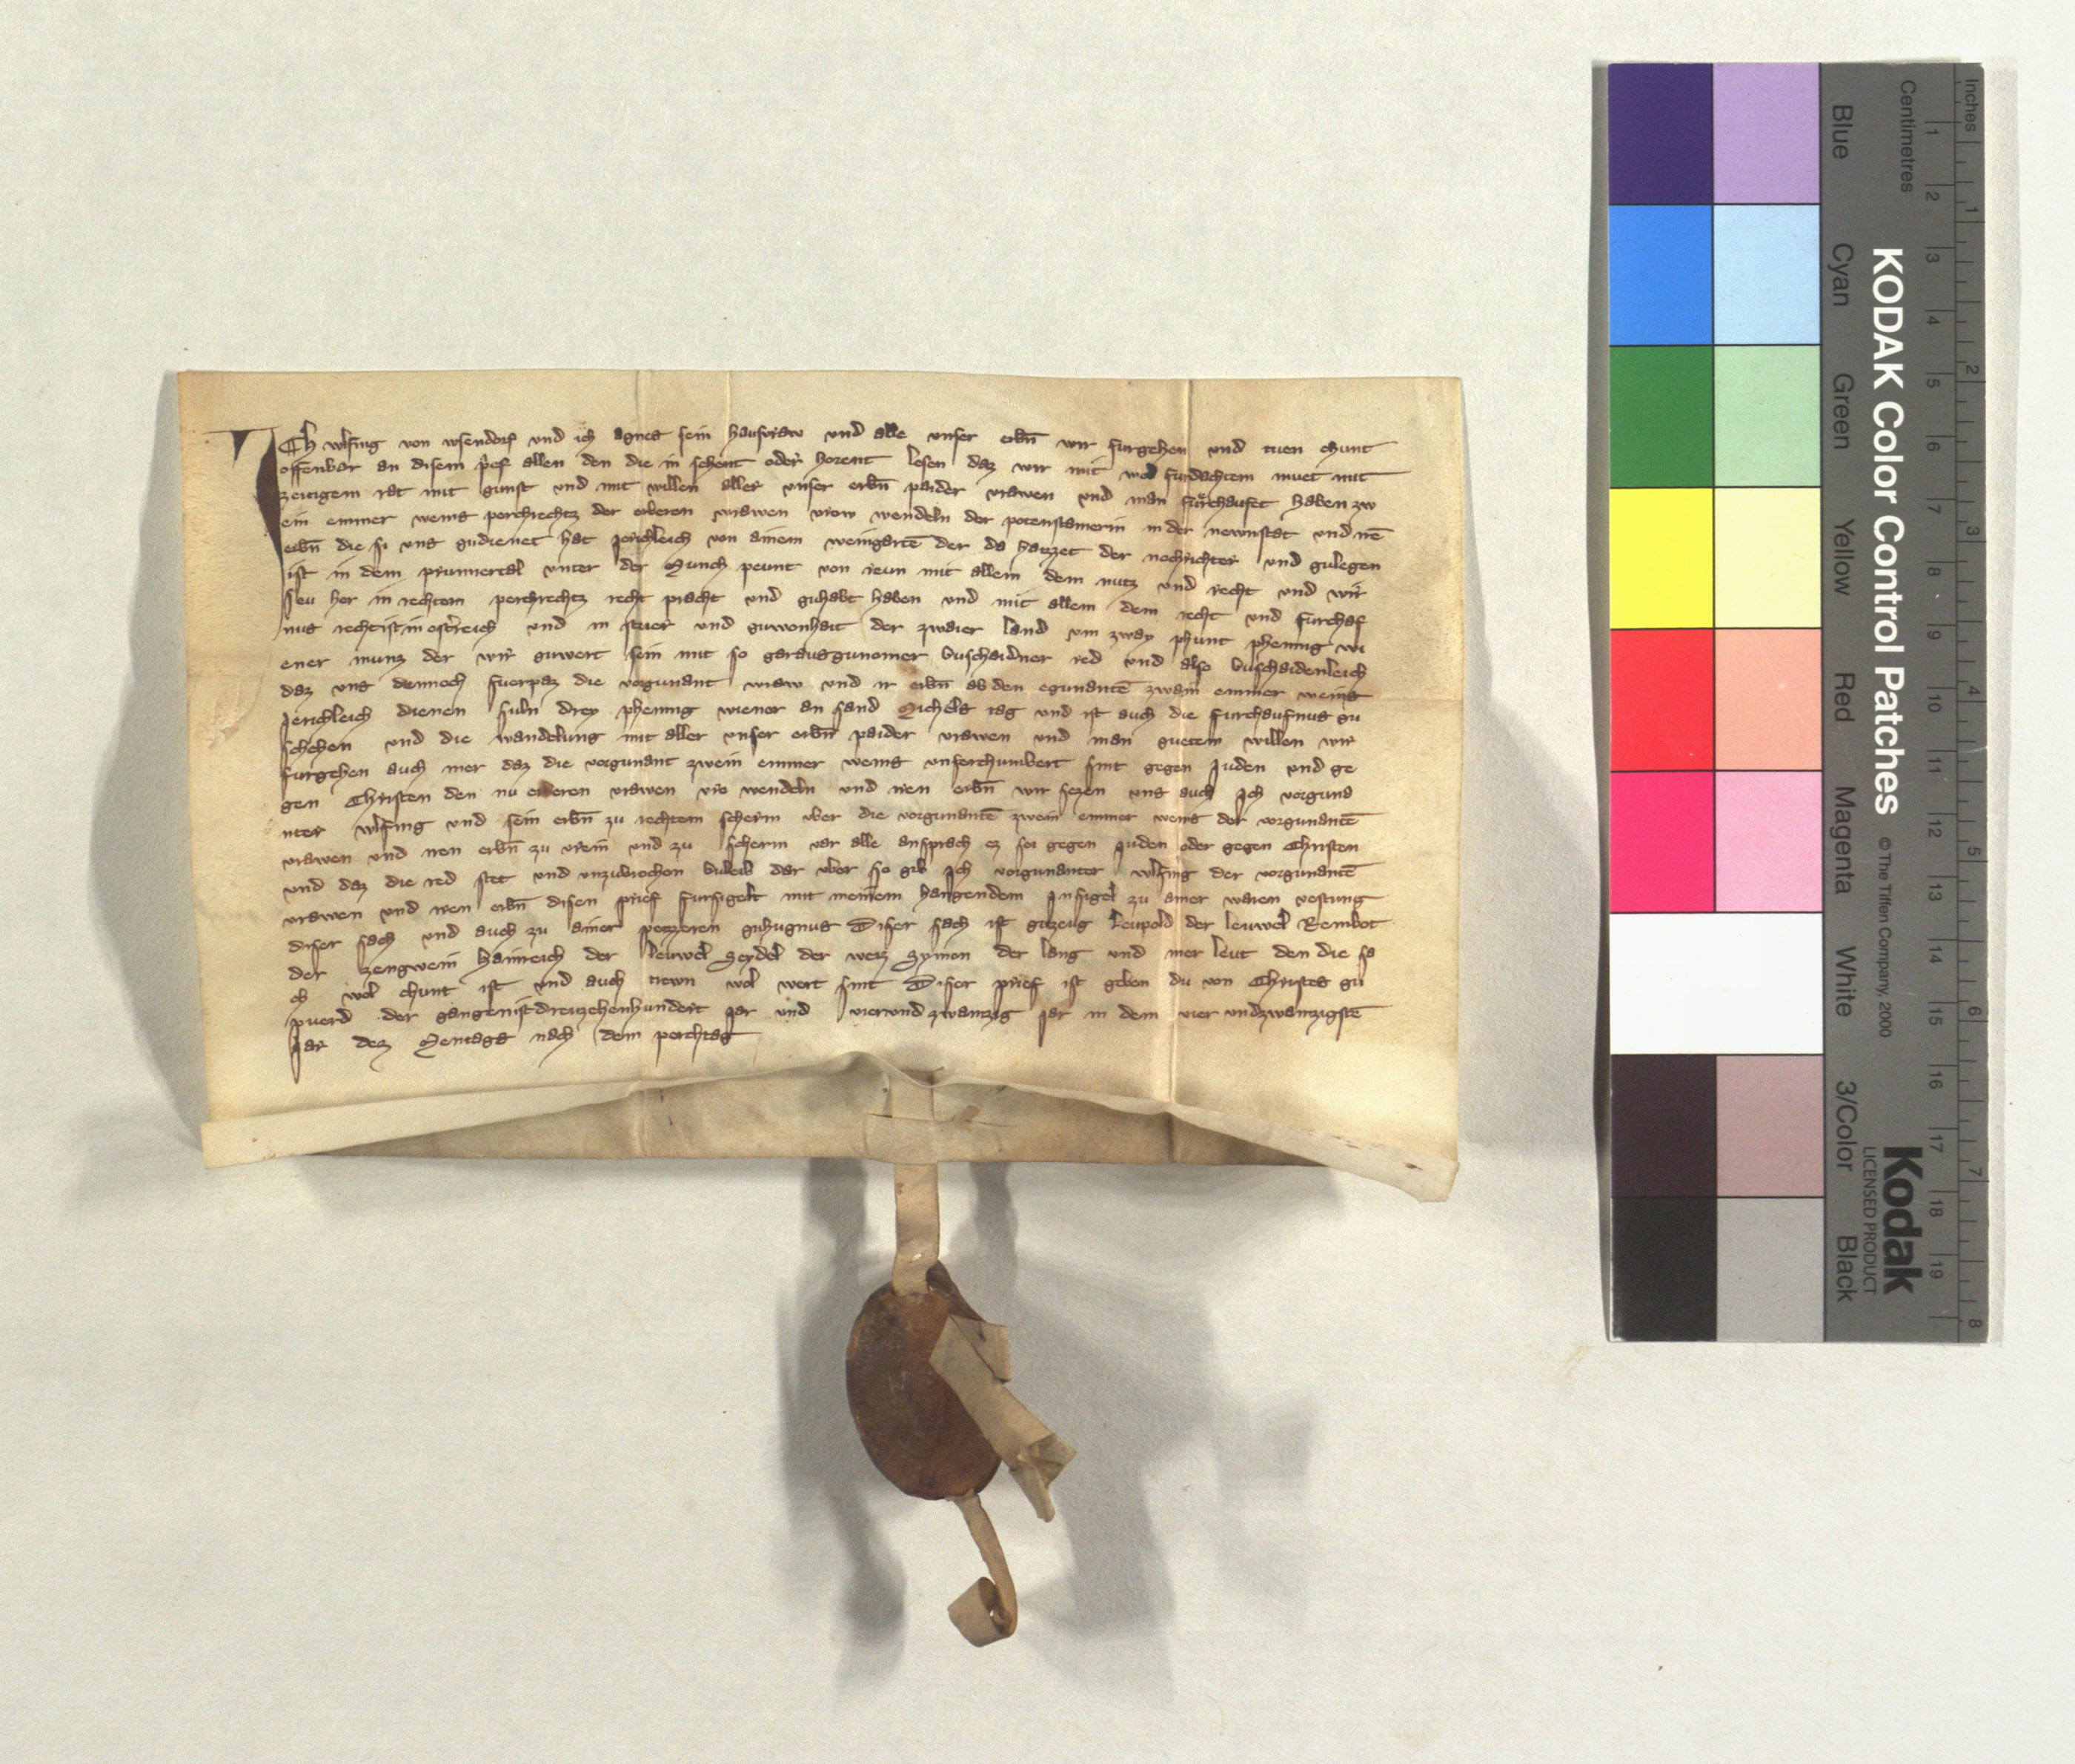 ICh wlfing von wsendorf und ich agnes sein hausvraw und alle unser erbn̄ wir furgehen und tuen chunt
offenbar an disem prief allen den die in sehent oder horent lesen daz wir mit wol furdachtem muet mit
zeitigem rat mit gunst und mit willen aller unser erbn̄ paider vrawen und man furchauft haben zw
ein emmer weins perchrechtz der erberen vrawen vrow wendeln der potenstainerin in der newnstat und irē
erbn̄ die si uns gudienet hat Jerichleich von ainem weingartē der da haizzet der nochrichter und gulegen
ist in dem prunnertal unter der Munch peunt von reun mit allem dem nutz und recht und wir
seu her in rechtem perchrechtz recht pracht und guhabt haben und mit allem dem recht und furchaf
nus recht ist in osterreich und in steier und guwonhait der zwaier land um zway phunt phening wi
ener munz der wir guwert sein mit so garausgunomer buschaidner red und also buschaidenleich
daz uns dennoch fuerpaz die vorgunant vraw und ir erbn̄ ab den egunantē zwain emmer weins
Jerichleich dienen suln drey phening wiener an sand Michels tag und ist auch die furchaufnus gu
schehen und die wandelung mit aller unser erbn̄ paider vrawen und man guetem willen wir
furgehen auch mer daz die vorgunant zwein emmer weins unferchumbert sint gegen Juden und ge
gen Christen den nu erberen vrawen vro wendeln und iren erbn̄ wir sezen uns auch Ich vorguna
nter wlfing und sein erbn̄ zu rechtem scherm uber die vorgunantē zwein emmer weins der vorgunantē
vrawen und iren erbn̄ zu vrein und zu scherm var alle ansprach ez sei gegen Juden oder gegen Christen
und daz die red stet und unzubrochen buleib dar uber so gib Ich vorgunanter wlfing der vorgunantē
vrawen und iren erbn̄ disen prief fursigelt mit meinem hangendem Insigel zu ainer waren vestung
diser sach und auch zu ainer pezzeren guhugnus Diser sach ist guzeug Leupold der leuwel Rembot
der zengwein Hainreich der leuwel Seydel der weiz Symon der lang und mer leut den die sa
ch wol chunt ist und auch trewn wol wert sint Diser prief ist geben du von Christes gu
puerd der gangen ist dreuzehenhundert Jar und vierundzwanzig Jar in dem vier undzwanzigstē
Jar dez Mentags nach dem perchtag
KODAK Color Control Patches
© The Tiffen Company, 2000
Kodak
LICENSED PRODUCT
Blue
Cyan
Green
Yellow
Red
Magenta
White
3/Color
Black
Inches
1 2 3 4 5 6 7 8
Centimetres
1 2 3 4 5 6 7 8 9 10 11 12 13 14 15 16 17 18 19